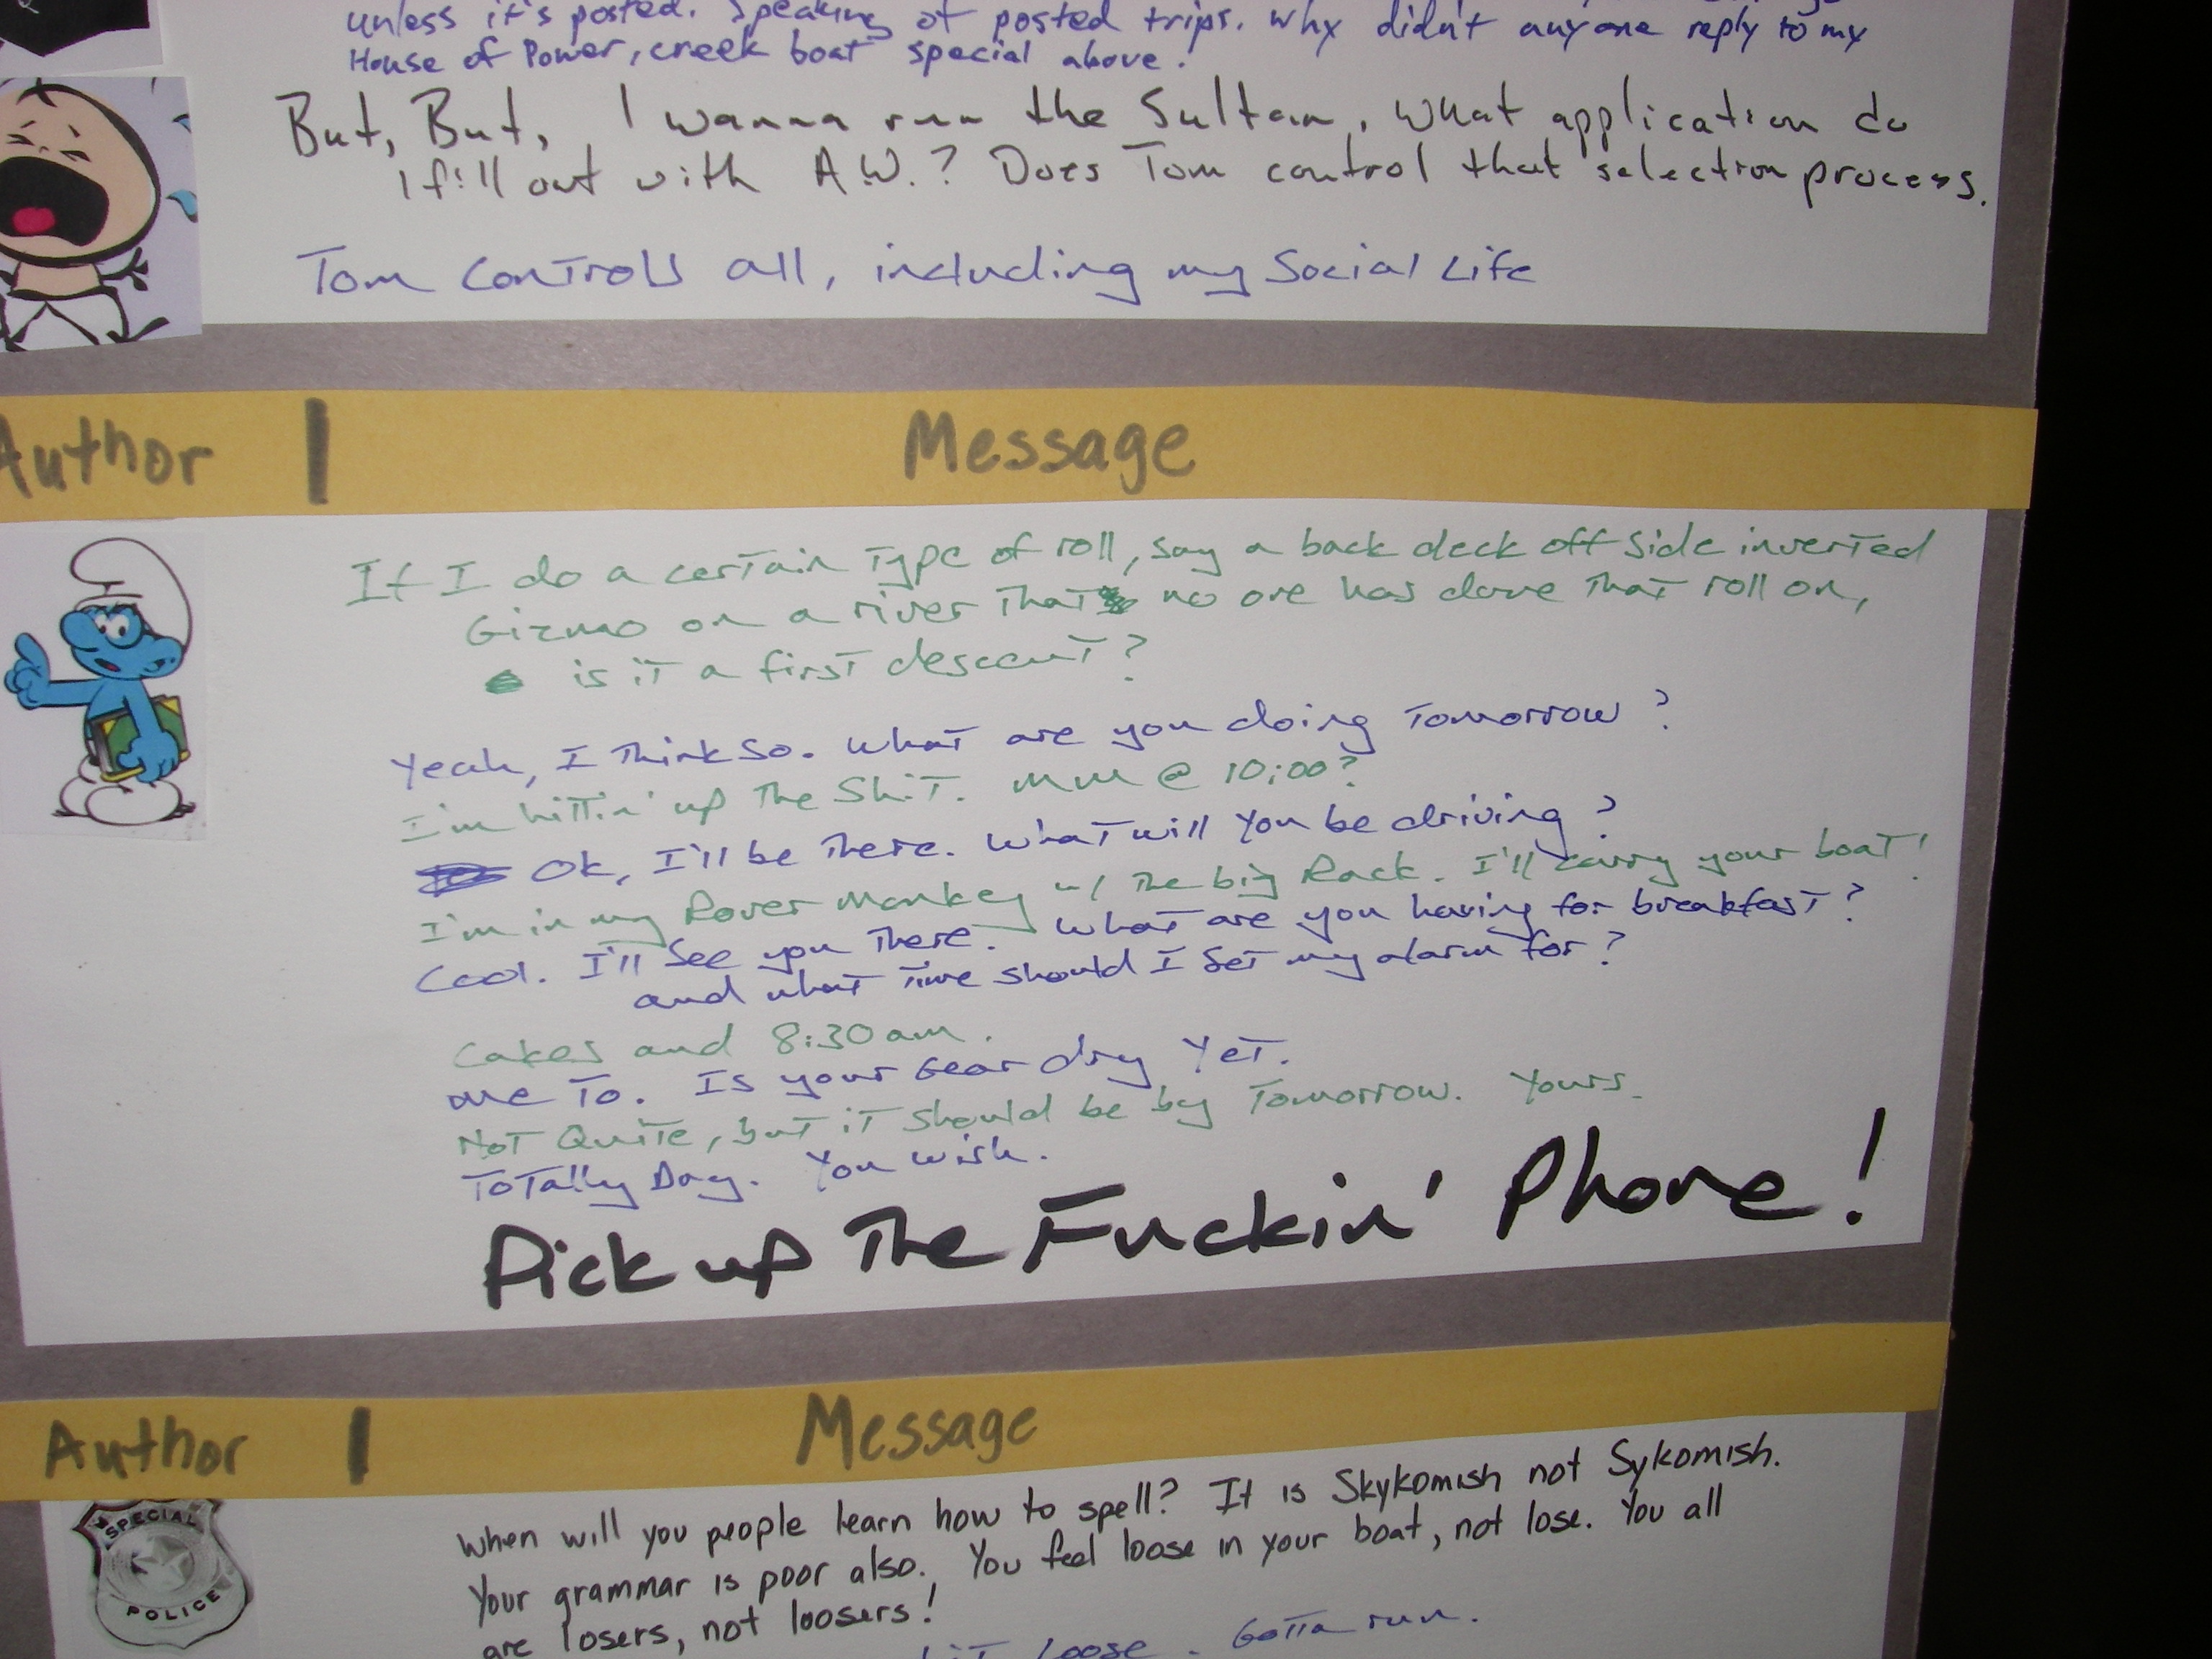 unless it's posted. Speaking of posted trips. Why didn't anyone reply to my
House of Power, creek boat special above!
But, But, I wanna run the Sultan. What application do
I fill out with A.W.? Does Tom control that selection process.
Tom Controls all, including my Social Life
Author | Message
If I do a certain type of roll, say a back deck off side inverted
Gizmo on a river that no one has done that roll on,
is it a first descent?
Yeah, I Think So. What are you doing Tomorrow?
I'm hittin' up The Shit. MM @ 10:00?
Ok, I'll be There. What will You be driving?
I'm in my Rover Monkey w/ The big Rack. I'll carry your boat!
Cool. I'll See you There. What are you having for breakfast?
and what Time should I Set my alarm for?
Cakes and 8:30am.
me To. Is your Gear dry Yet.
Not Quite, but it should be by Tomorrow. Yours.
ToTally Dog. You wish.
Pick up The Fuckin' Phone!
Author | Message
SPECIAL
POLICE
When will you people learn how to spell? It is Skykomish not Sykomish.
Your grammar is poor also. You feel loose in your boat, not lose. You all
are losers, not loosers!
loose. Gotta run.